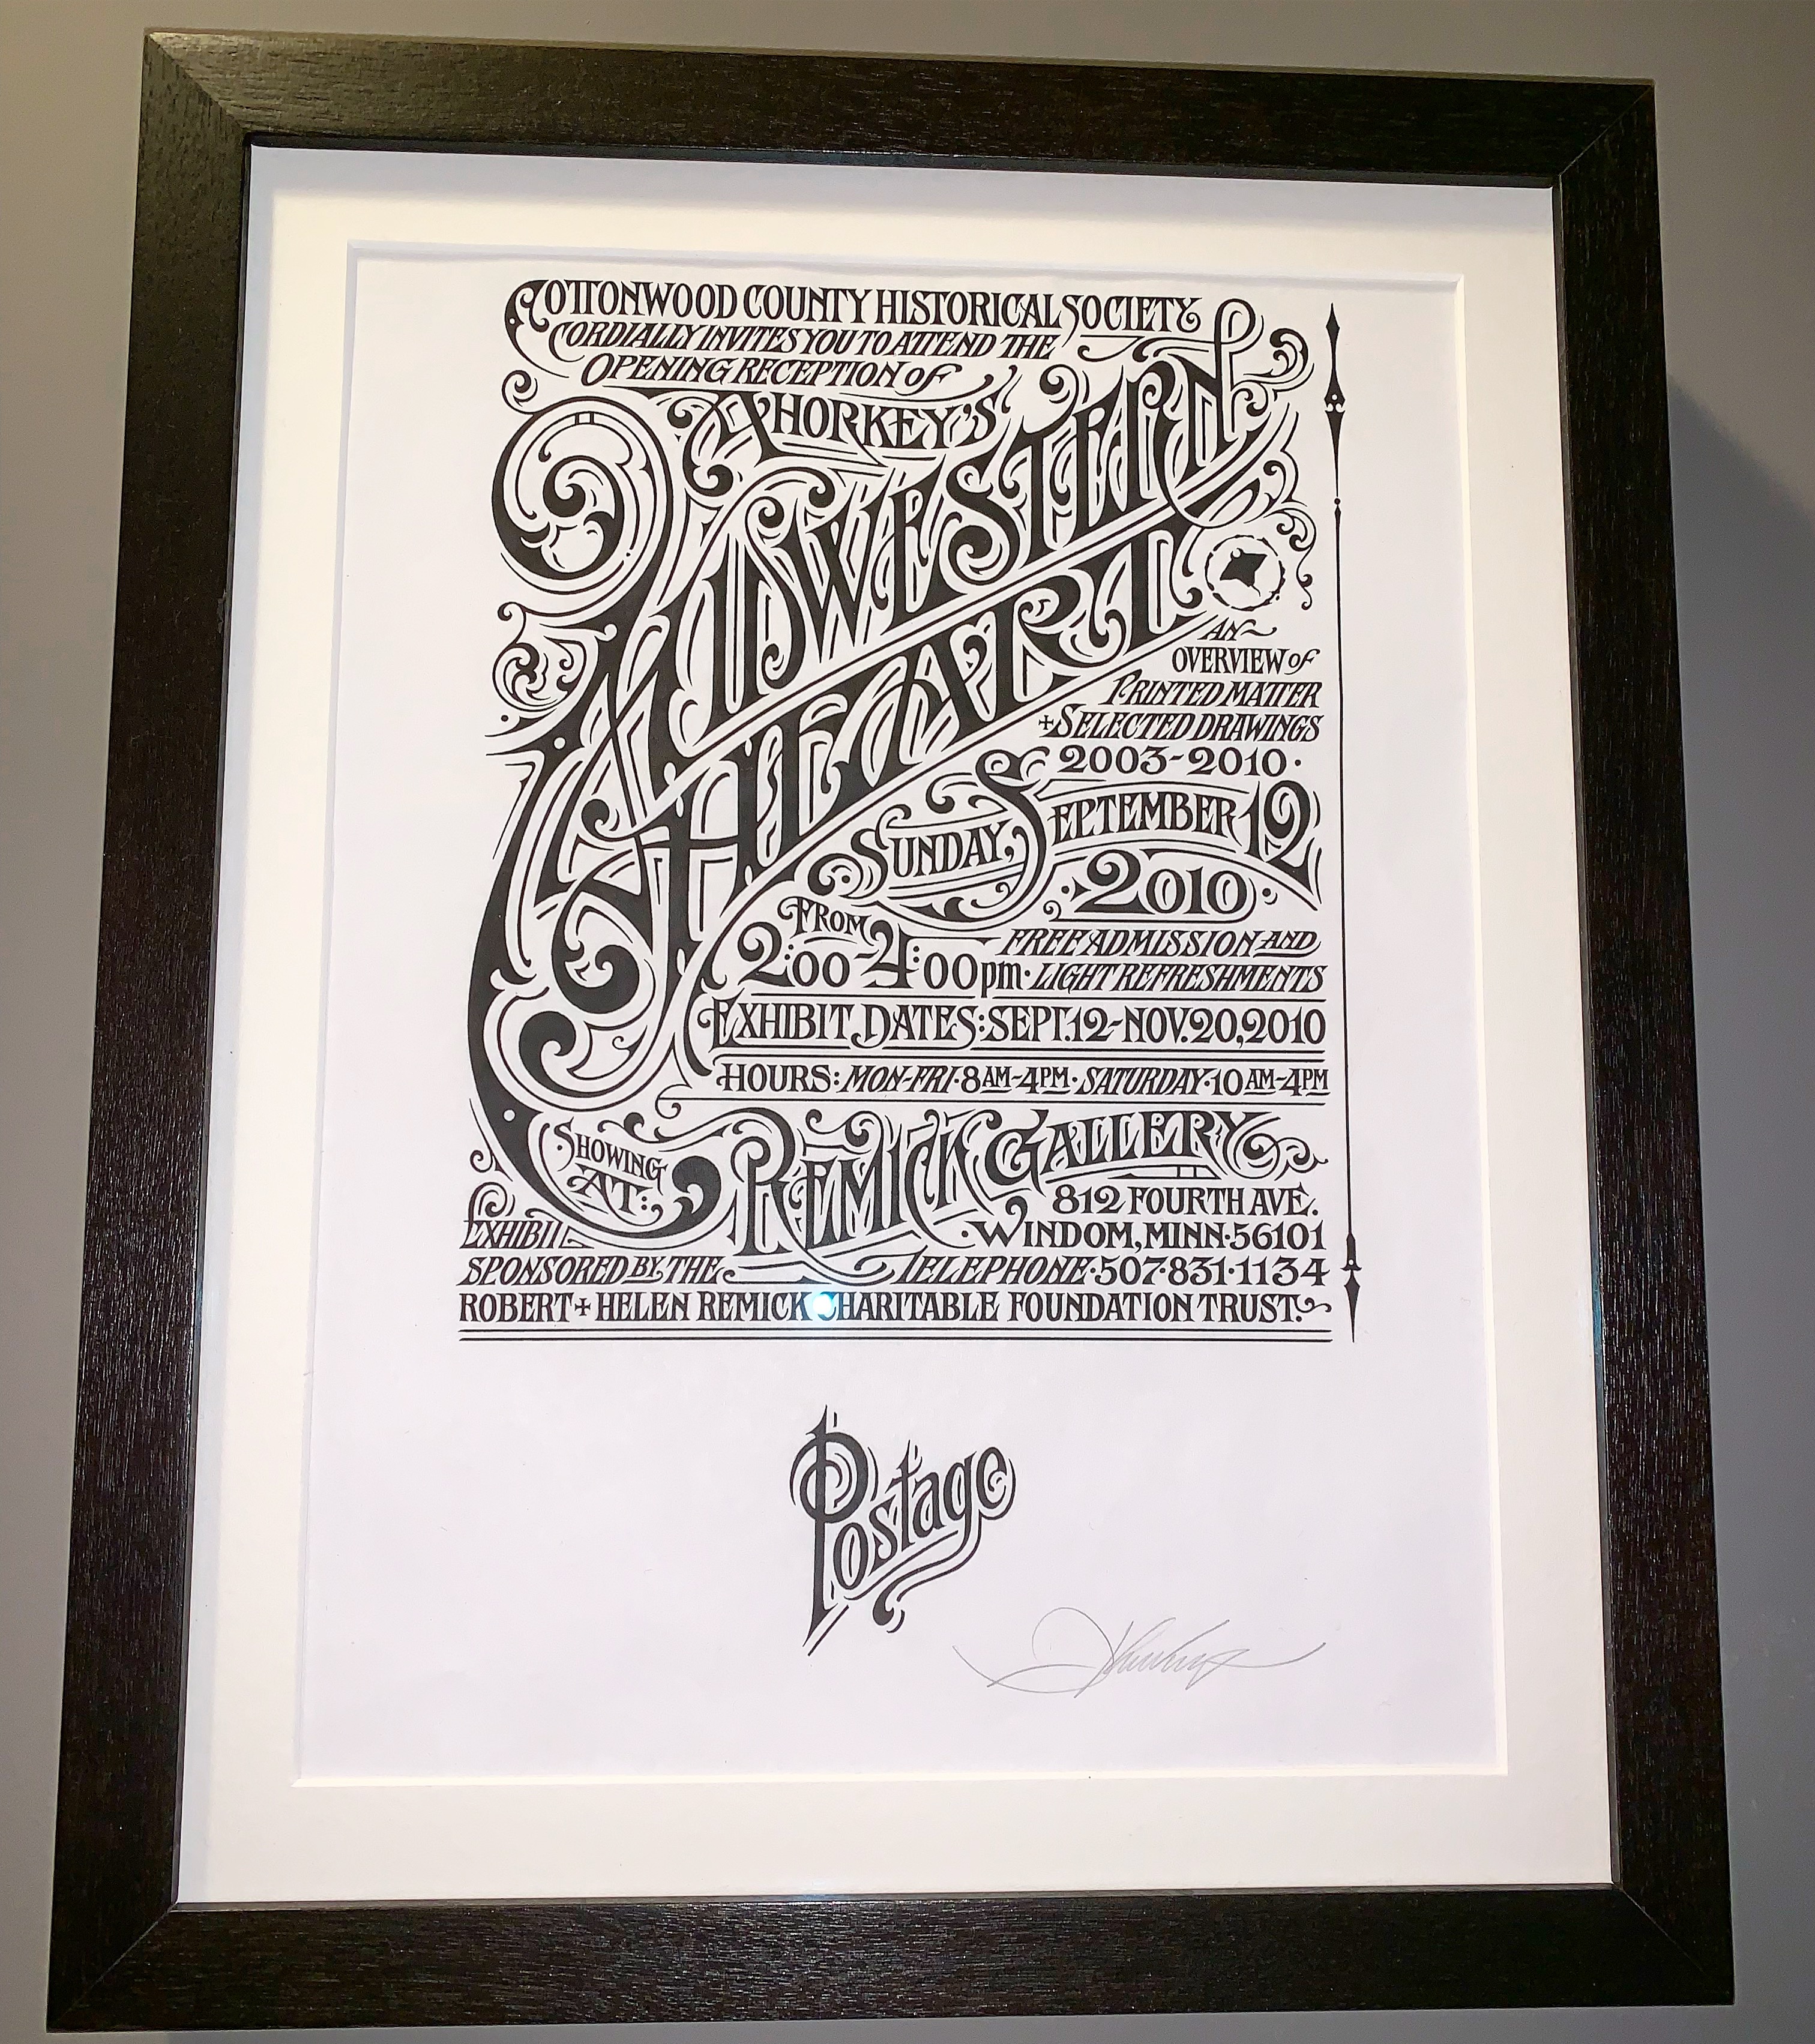 COTTONWOOD COUNTY HISTORICAL SOCIETY
CORDIALLY INVITES YOU TO ATTEND THE
OPENING RECEPTION OF
A HORKEY'S
MIDWESTERN
HEART
AN
OVERVIEW OF
PRINTED MATTER
+ SELECTED DRAWINGS
2003-2010·
SUNDAY, SEPTEMBER 12
·2010·
FROM
2:00-4:00pm· FREE ADMISSION AND
LIGHT REFRESHMENTS
EXHIBIT DATES: SEPT. 12-NOV. 20, 2010
HOURS: MON-FRI· 8AM-4PM· SATURDAY· 10AM-4PM
SHOWING
AT:
REMICK GALLERY
812 FOURTH AVE.
·WINDOM, MINN· 56101
TELEPHONE· 507·831·1134
EXHIBIT
SPONSORED BY THE
ROBERT + HELEN REMICK CHARITABLE FOUNDATION TRUST.
Postage